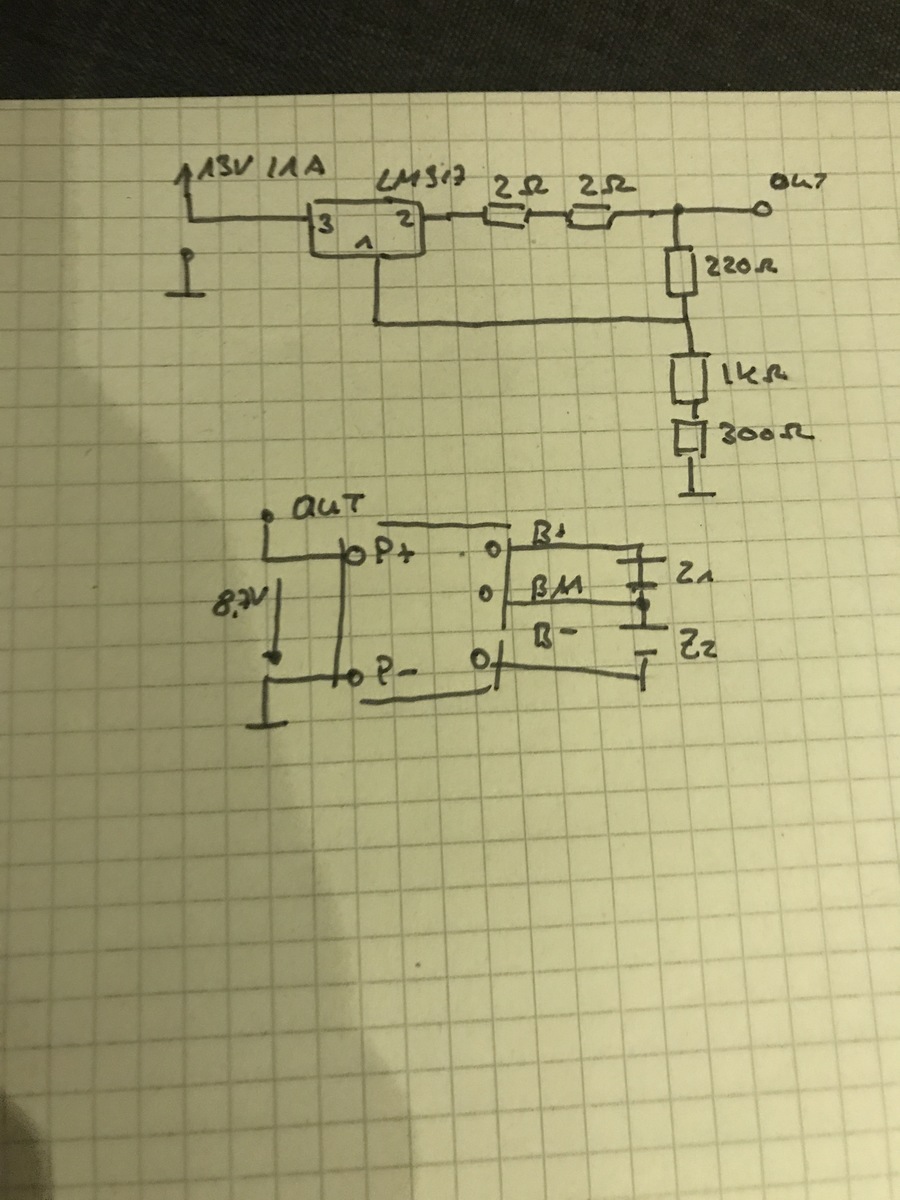 13V / 1A
LM317
2Ω 2Ω
OUT
3 2
1
220Ω
1kΩ
300Ω
OUT
P+
B+
Z1
8,7V
BM
B-
Z2
P-